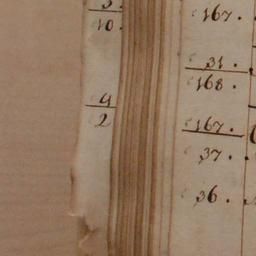 3.
10.
4
2
167.
31.
168.
167.
37.
36.